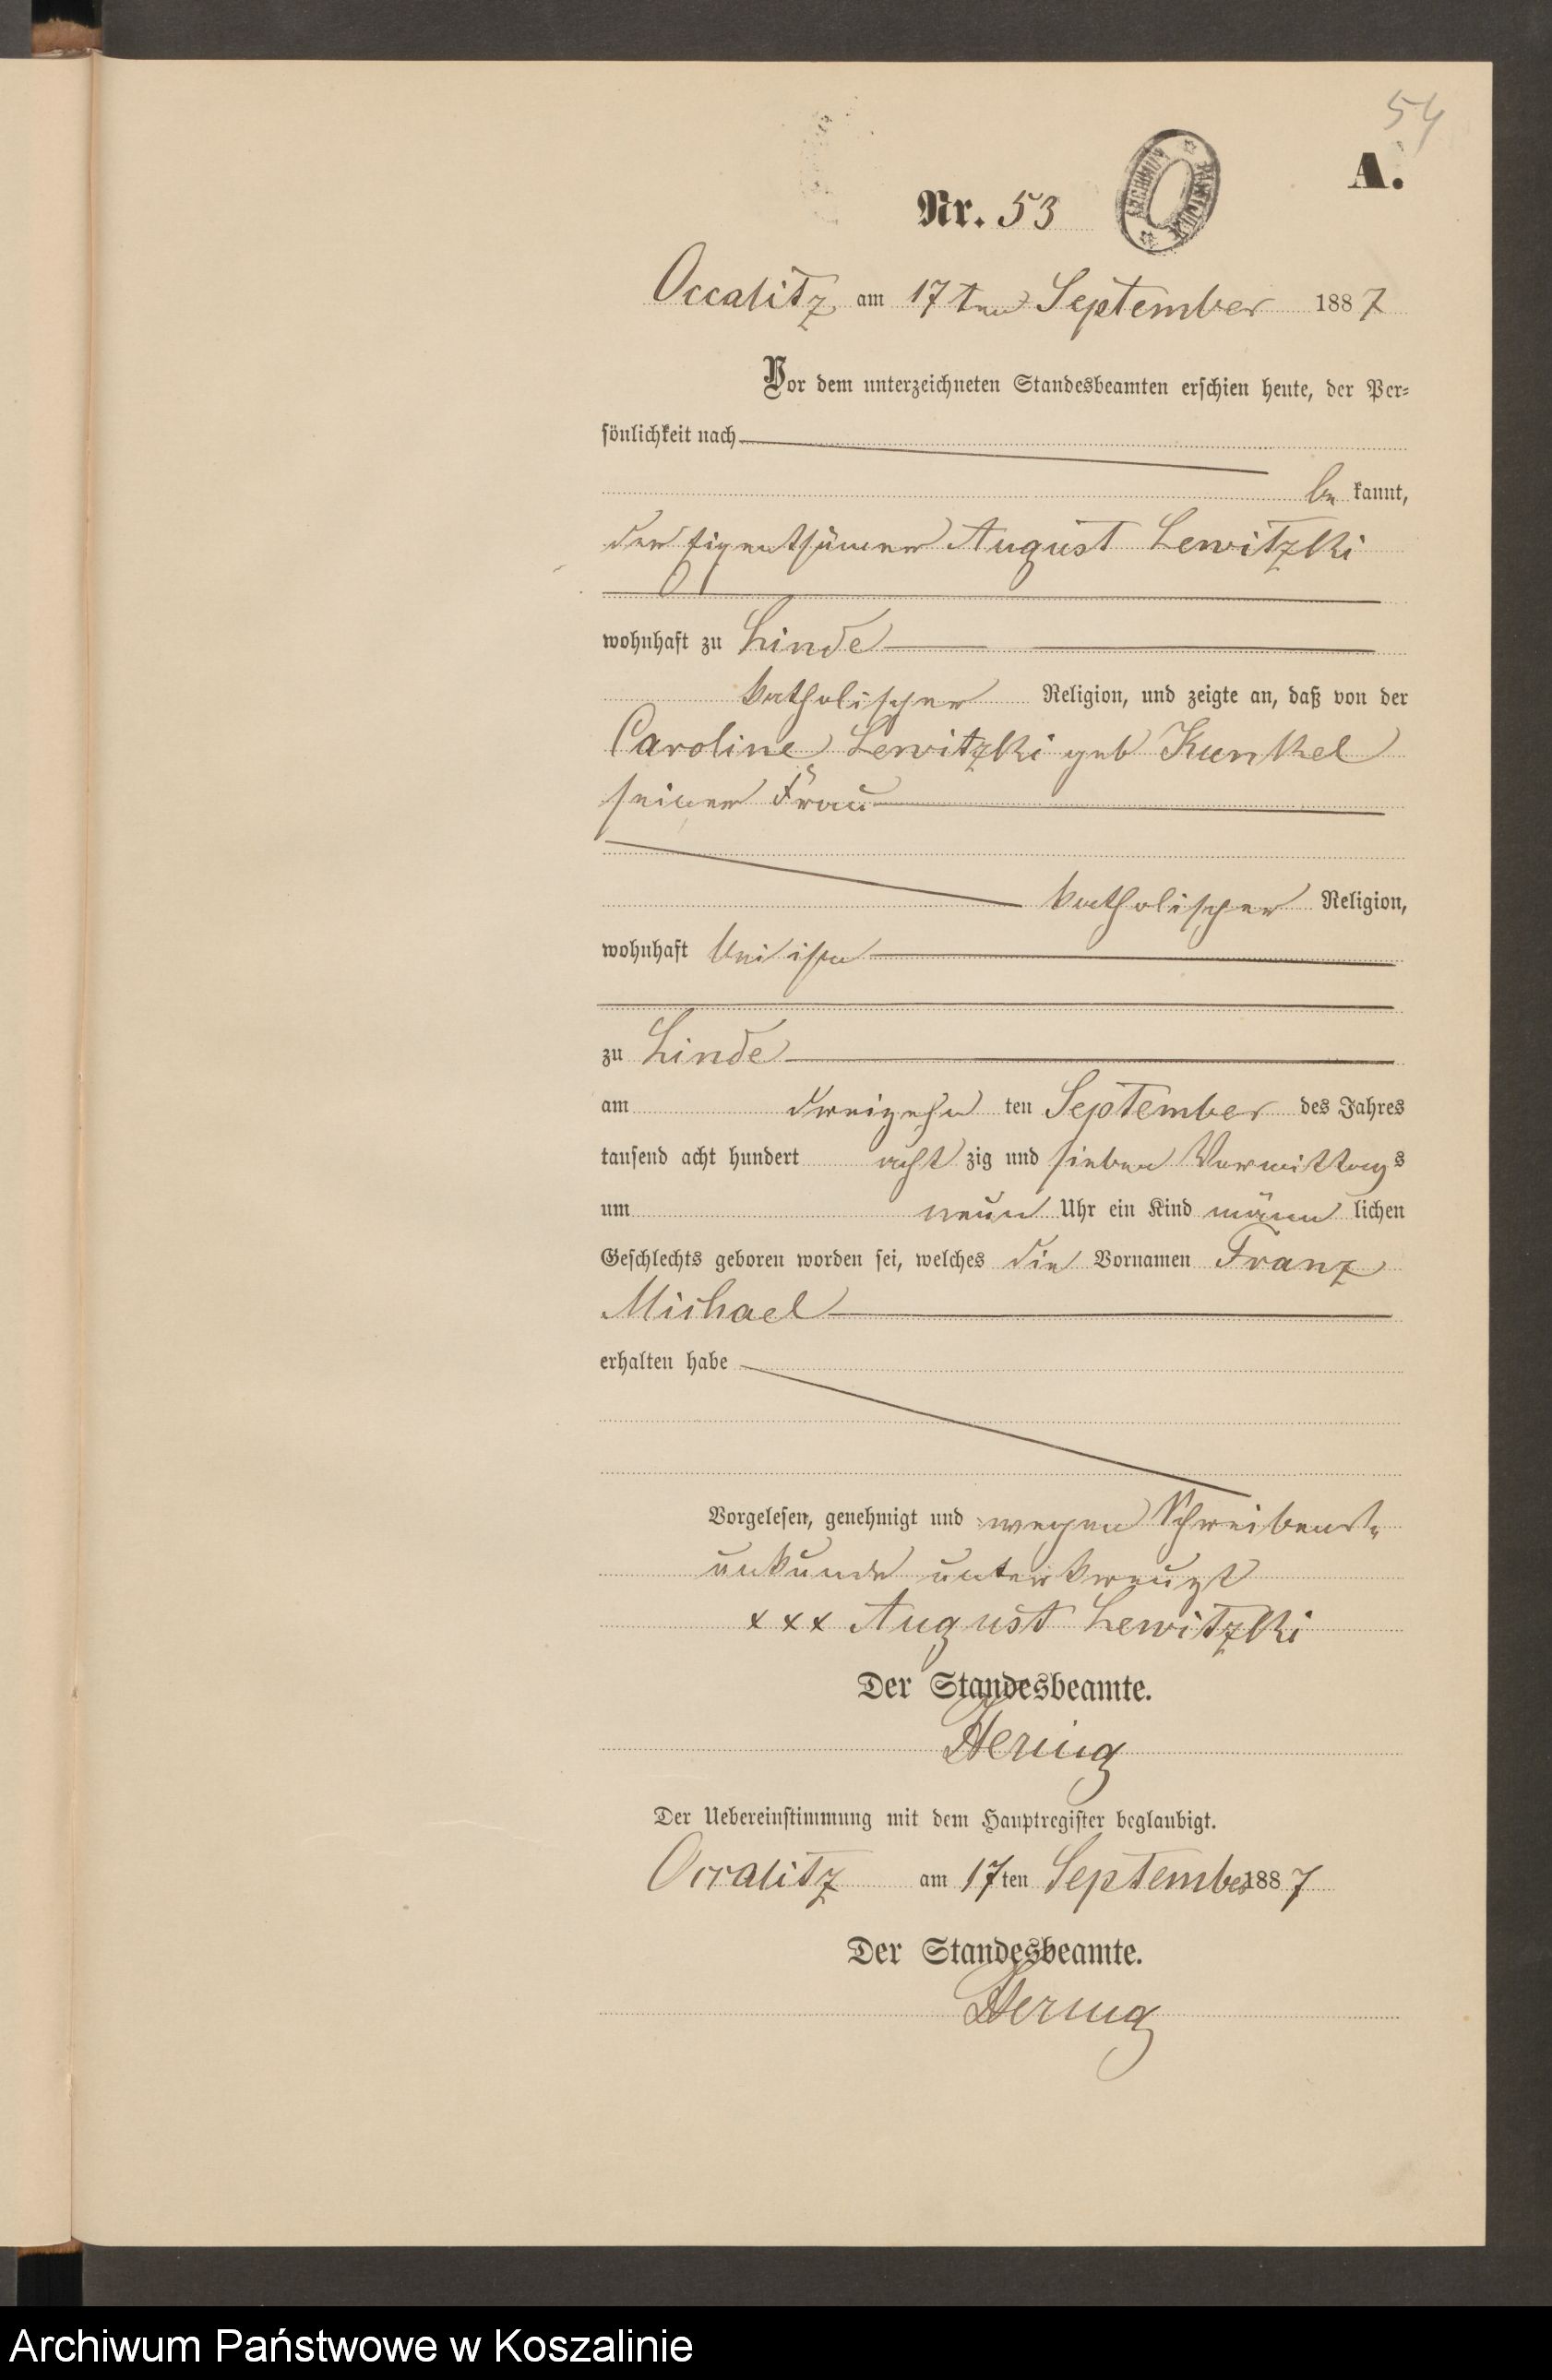 54
A.
Nr. 53
ARCHIWUM PAŃSTWOWE
Occalitz am 17ten September 1887
Vor dem unterzeichneten Standesbeamten erschien heute, der Per-
sönlichkeit nach
be kannt,
der Eigenthümer August Lewitzki
wohnhaft zu Linde
katholischer Religion, und zeigte an, daß von der
Caroline Lewitzki geb Kunkel
seiner Frau
katholischer Religion,
wohnhaft bei ihm
zu Linde
am dreizehn ten September des Jahres
tausend acht hundert acht zig und sieben Vormittags
um neun Uhr ein Kind männ lichen
Geschlechts geboren worden sei, welches die Vornamen Franz
Michael
erhalten habe
Vorgelesen, genehmigt und wegen Schreibens-
unkunde unterkreuzt
xxx August Lewitzki
Der Standesbeamte.
Hering
Der Uebereinstimmung mit dem Hauptregister beglaubigt.
Occalitz am 17ten September 1887
Der Standesbeamte.
Hering
Archiwum Państwowe w Koszalinie